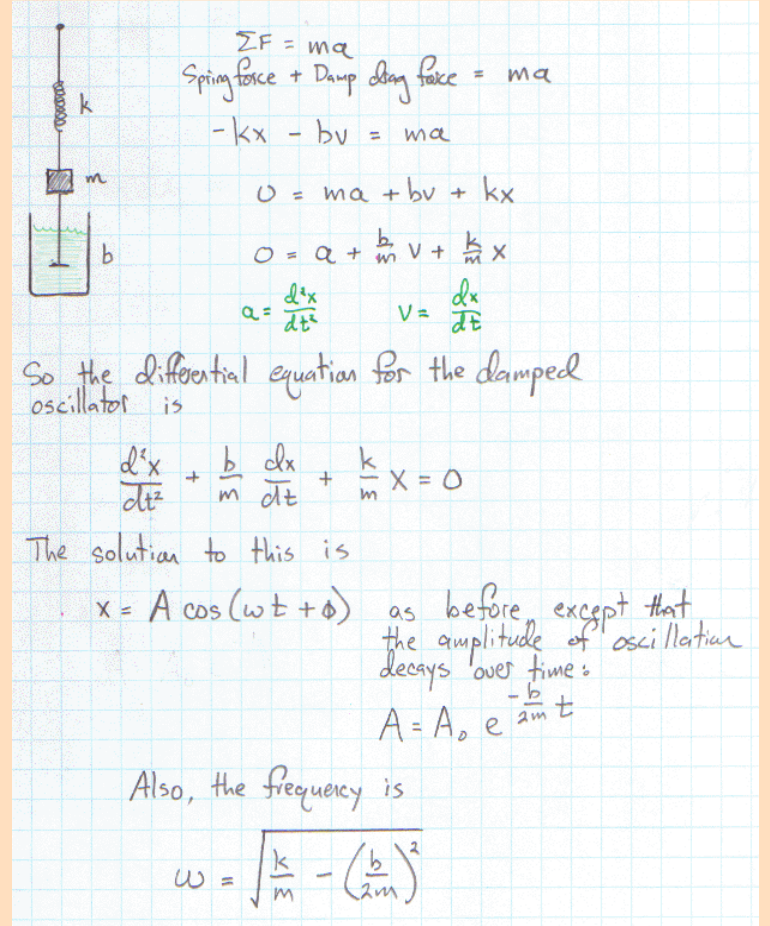 ΣF = ma
Spring force + Damp drag force = ma
k
-kx - bv = ma
m
0 = ma + bv + kx
b
0 = a + b/m v + k/m x
a = d²x/dt²   v = dx/dt
So the differential equation for the damped
oscillator is
d²x/dt² + b/m dx/dt + k/m x = 0
The solution to this is
x = A cos(ωt + ϕ) as before, except that
the amplitude of oscillation
decays over time:
A = A₀ e^(-b/2m t)
Also, the frequency is
ω = √(k/m - (b/2m)²)